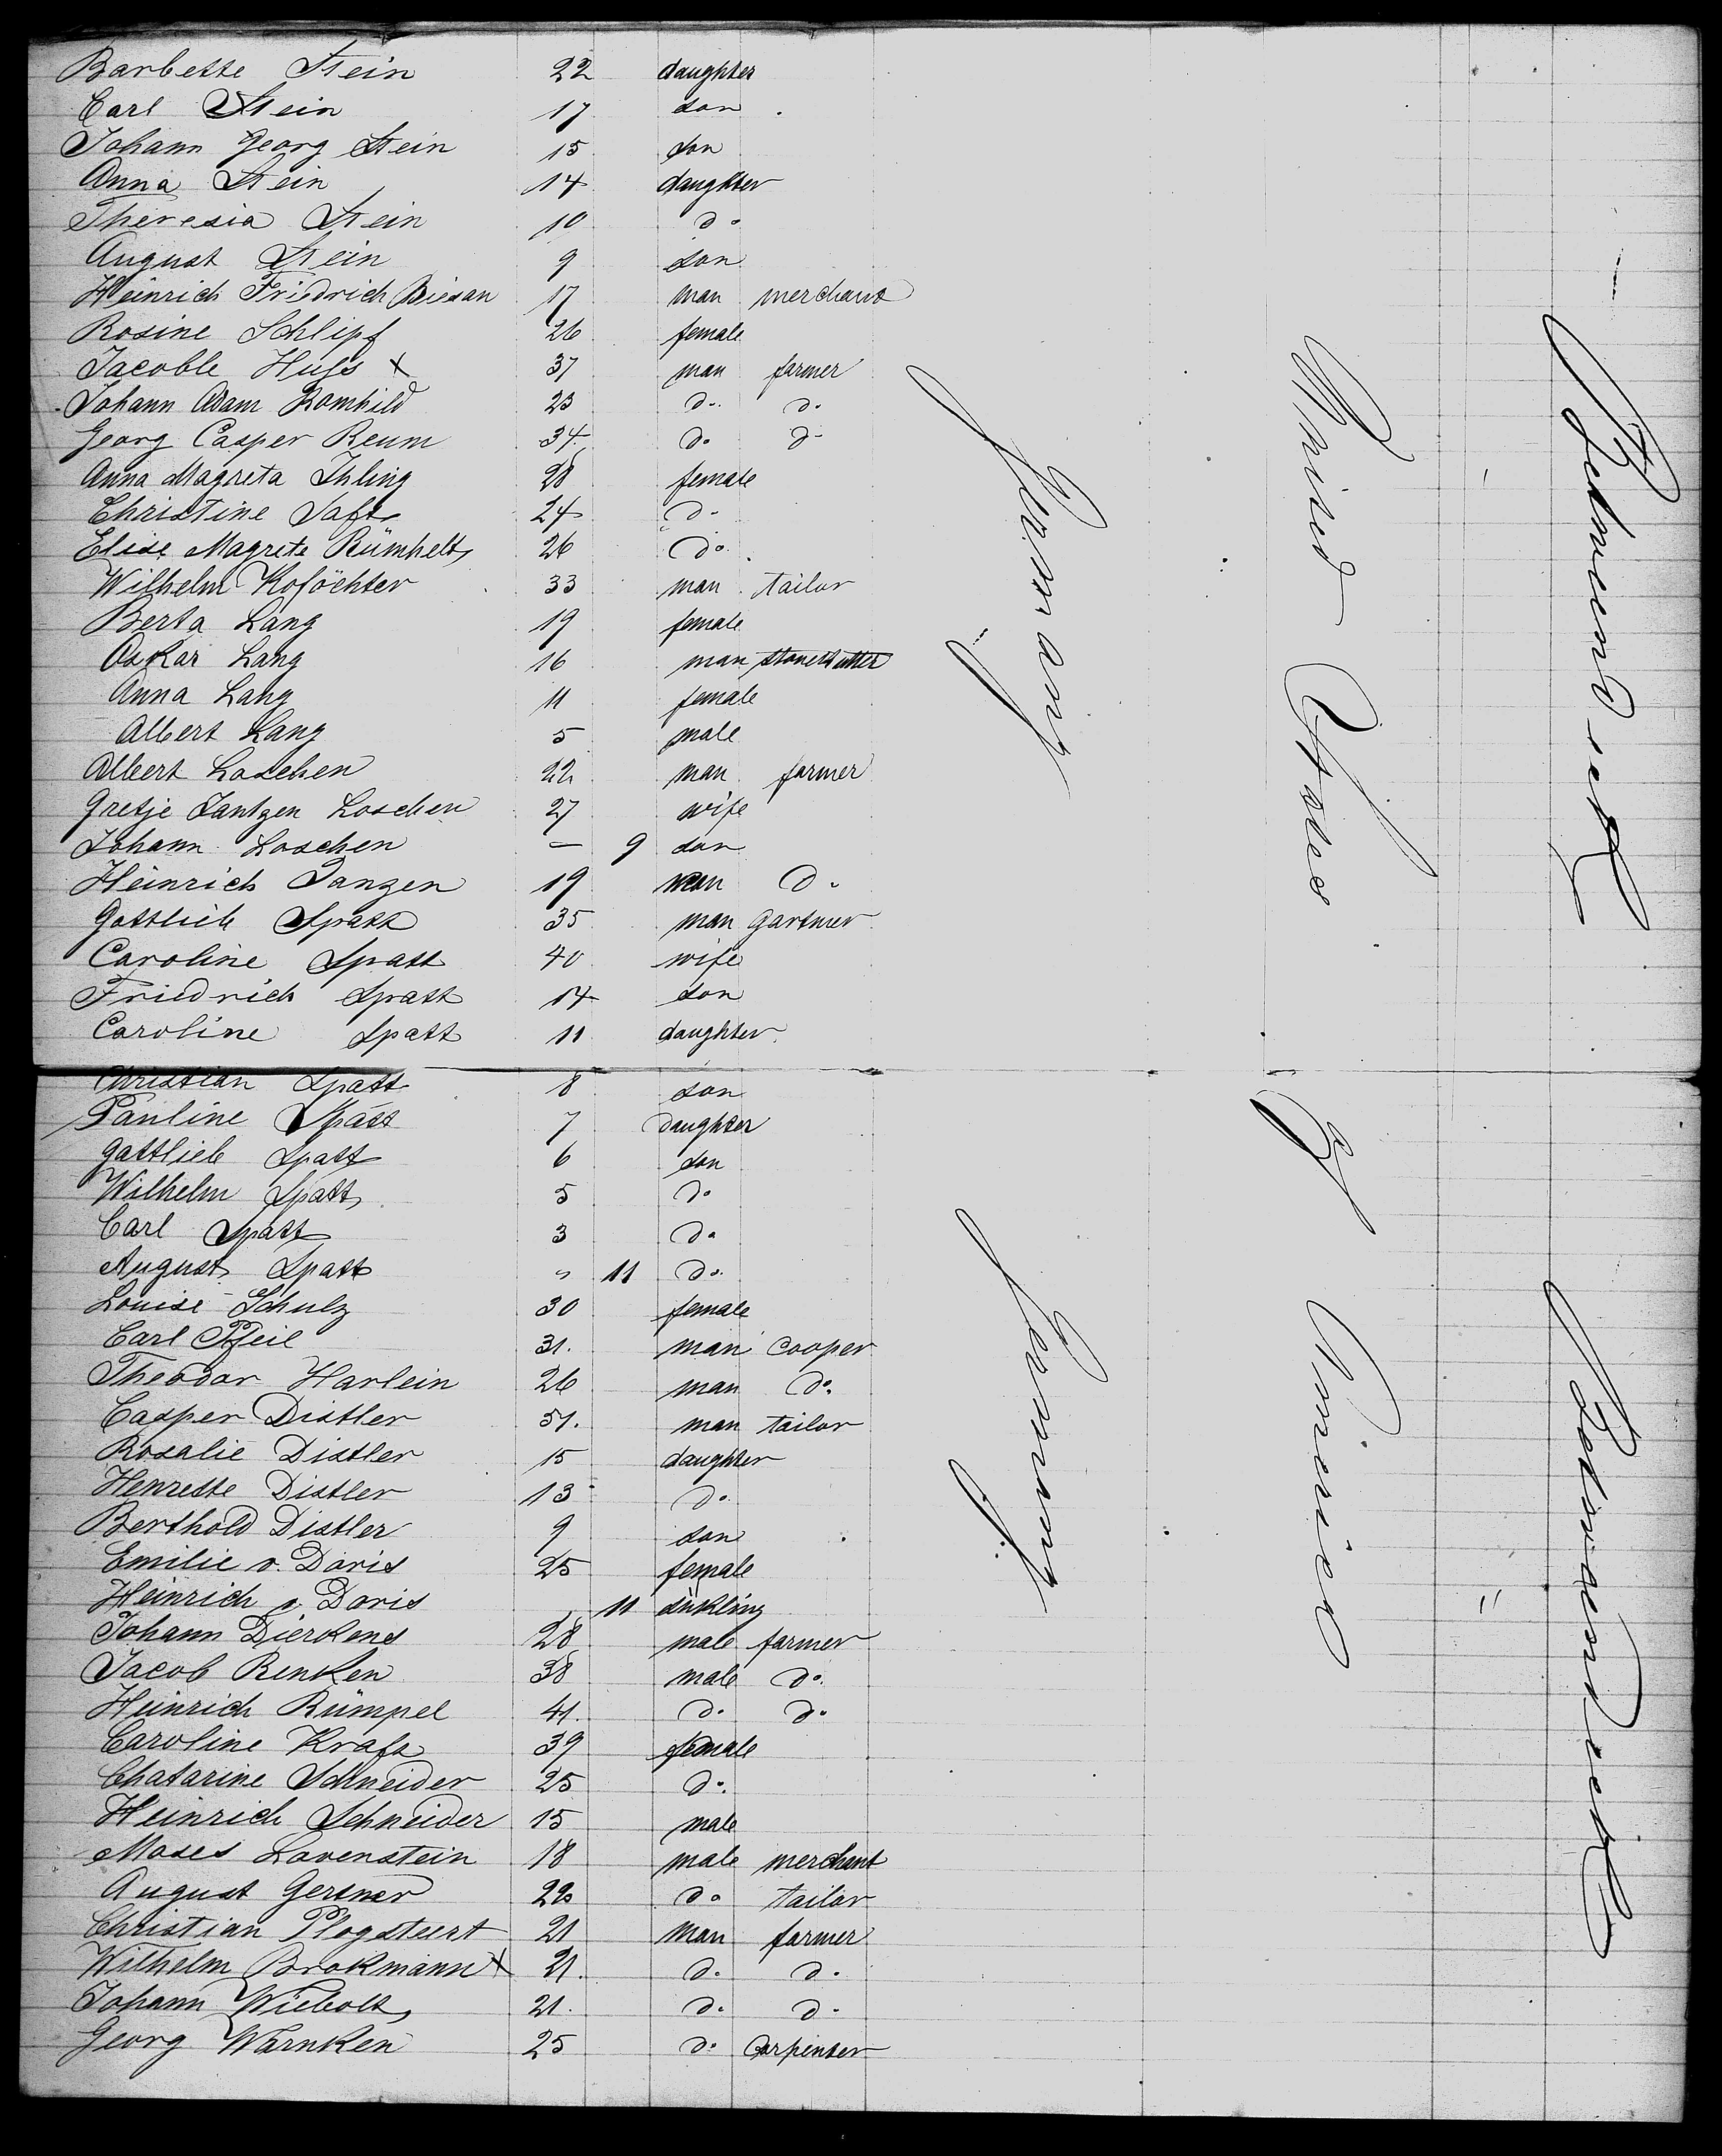 Barbette Stein 22 daughter
Carl Stein 17 son
Johann Georg Stein 15 son
Anna Stein 14 daughter
Theresia Stein 10 do
August Stein 9 son
Heinrich Friedrich 17 man merchant
Rosine Schlipf 26 female
Jacoble Huss x 37 man farmer
Johann Adam Romhild 23 do. do.
Georg Casper Reum 34 do. do
Anna Magreta Ihling 28 female
Christine Saft 24 do
Elise Magrete Rümhelt 26 do.
Wilhelm 33 man tailor
Berta Lang 19 female
Oskar Lang 16 man stonecutter
Anna Lang 11 female
Albert Lang 5 male
Albert Loschen 22 man farmer
Gretje Jantzen Loschen 27 wife
Johann Loschen — 9 son
Heinrich Janzen 19 man do.
Gottlieb Spatt 35 man gartner
Caroline Spatt 40 wife
Friedrich Spatt 14 son
Caroline Spatt 11 daughter
Christian Spatt 8 son
Pauline Spatt 7 daughter
Gottlieb Spatt 6 son
Wilhelm Spatt 5 do
Carl Spatt 3 do
August Spatt " 11 do.
Louise Schulz 30 female
Carl Pfeil 31. man cooper
Theodor Harlein 26 man do.
Casper Distler 51. man tailor
Rosalie Distler 15 daughter
Henrette Distler 13 do.
Berthold Distler 9 son
Emilie v. Doris 25 female
Heinrich v. Doris 11 sukling
Johann Dierkens 28 male farmer
Jacob Renken 38 male do.
Heinrich Rümpel 41. do. do.
Caroline Kraft 39 female
Chatarine Schneider 25 do.
Heinrich Schneider 15 male
Moses Lovenstein 18 male merchant
August Gertner 22 do tailor
Christian Plogsteert 21 man farmer
Wilhelm Brokmann x 21. do. do.
Johann Wiebolt 21. do. do.
Georg Warnken 25 do. Carpenter
Germany
Germany
United States of America
Betweendeck
Betweendeck